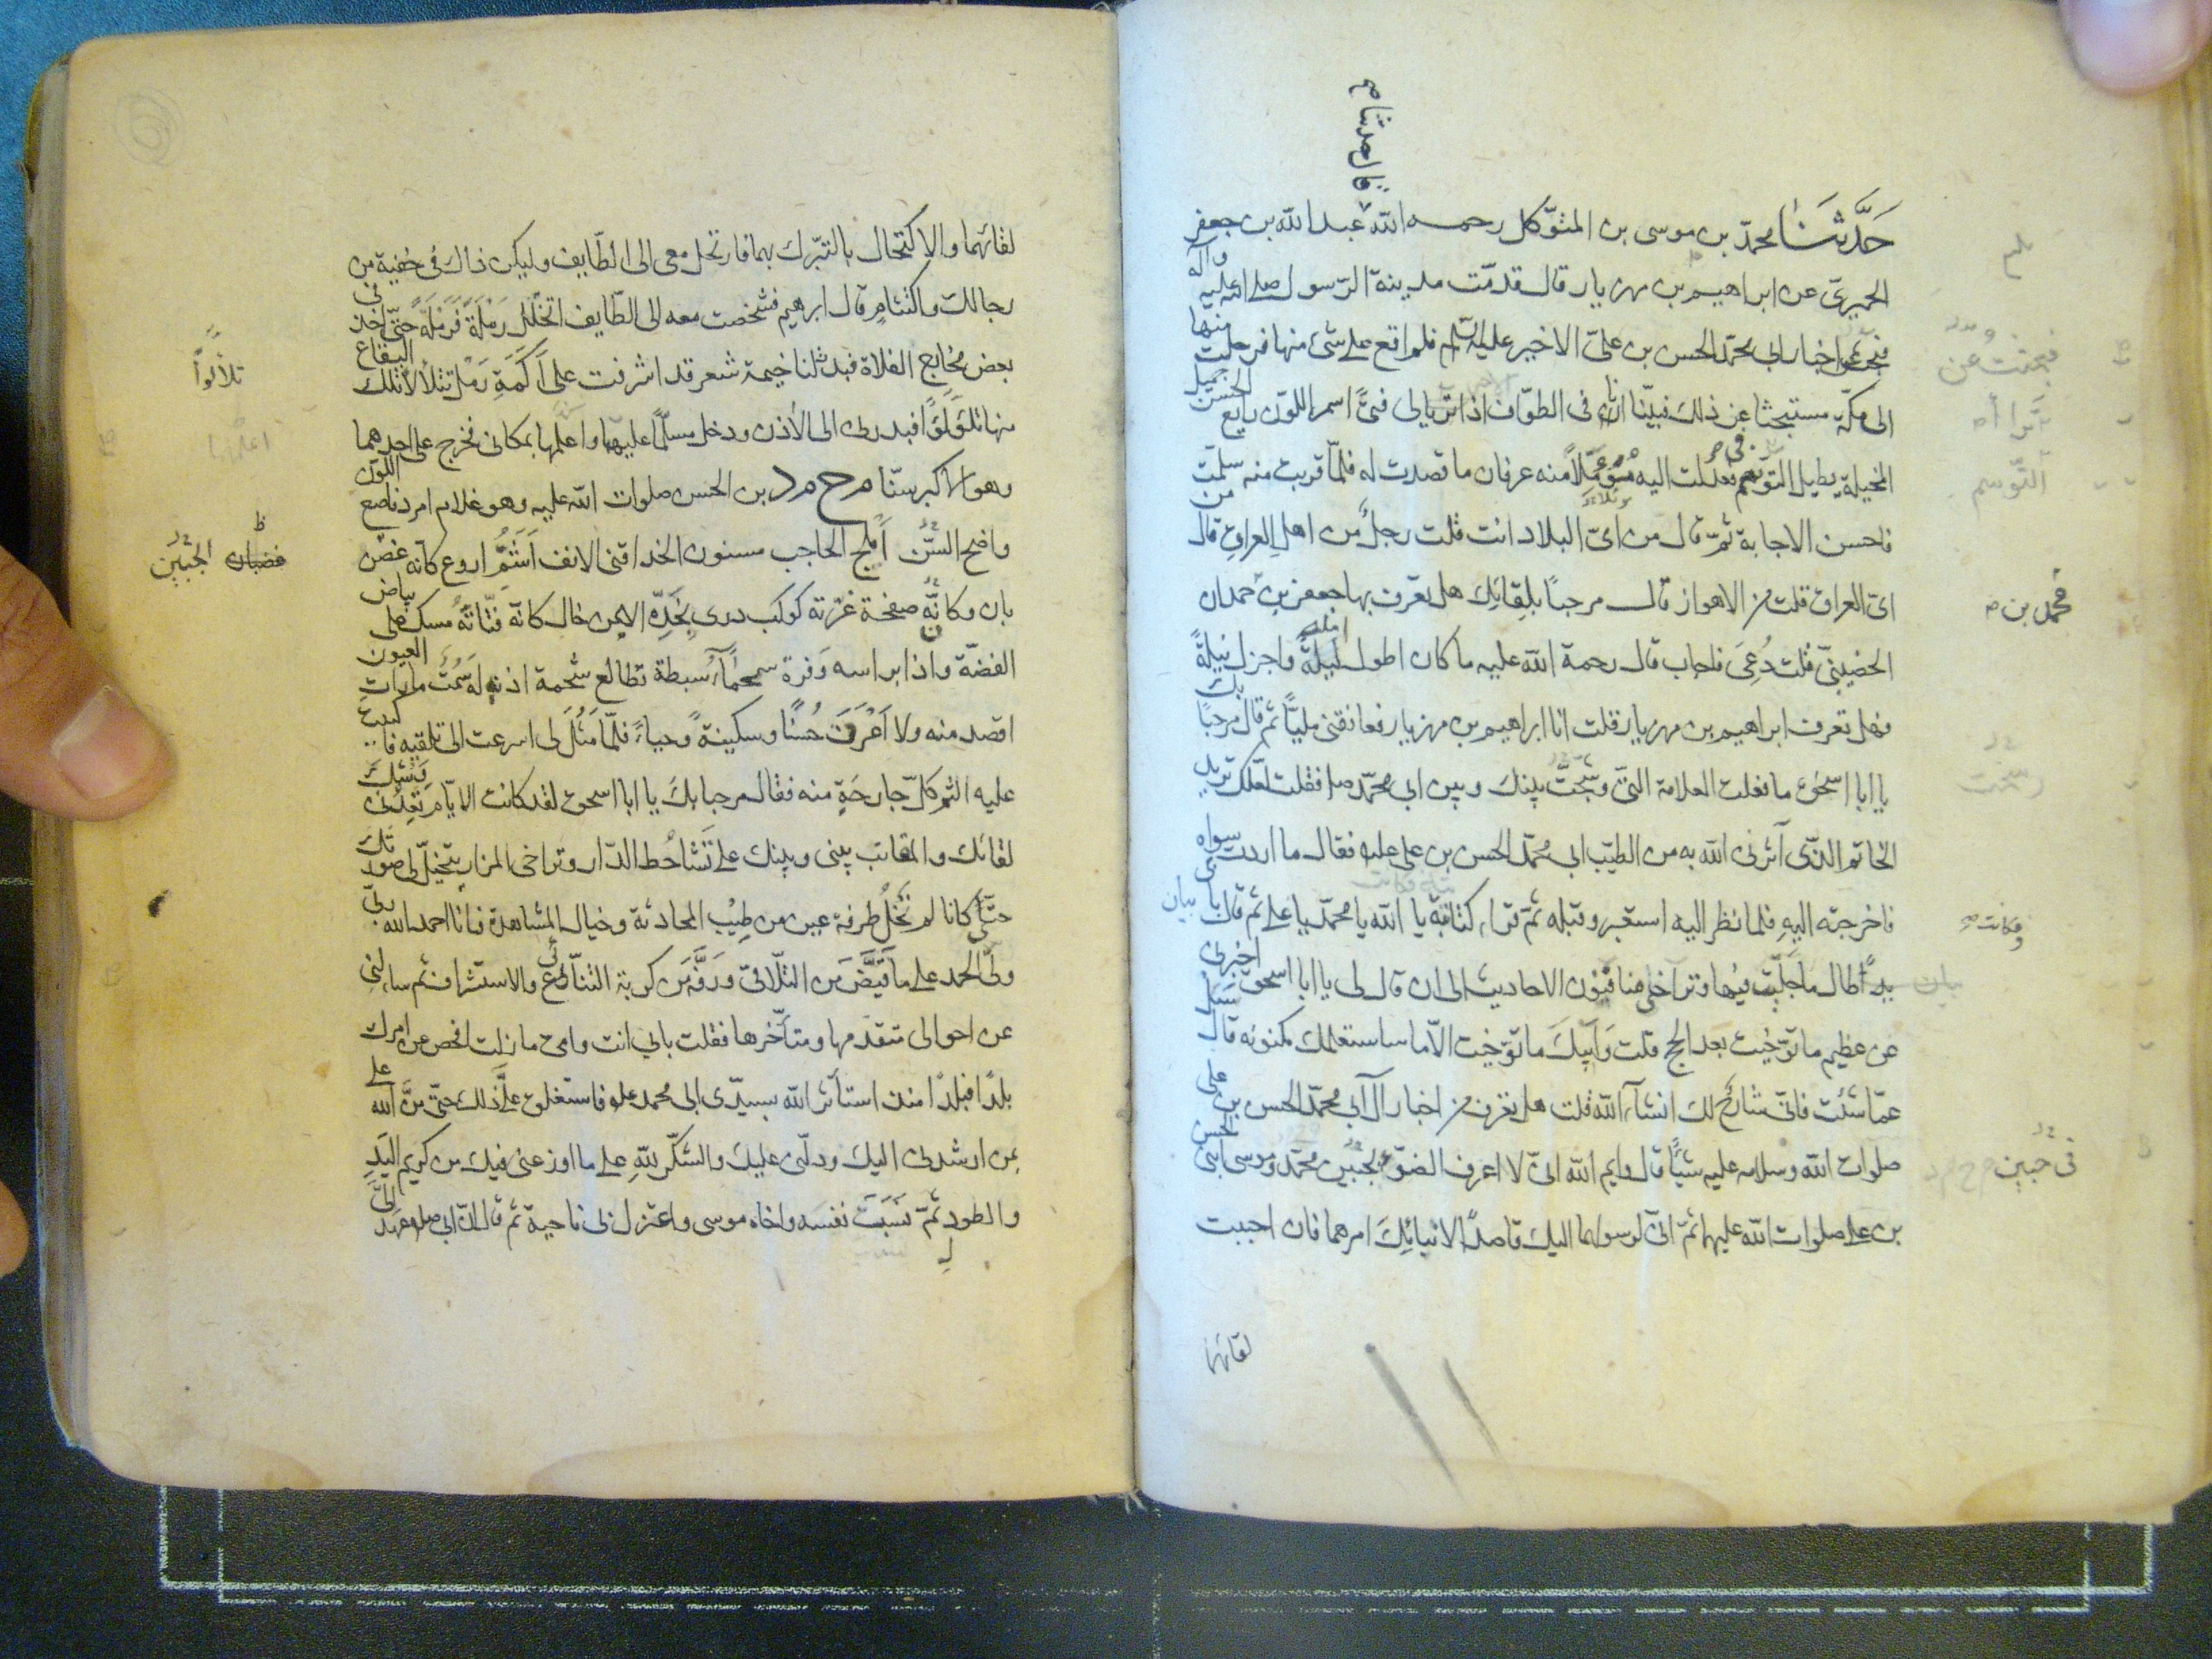 قال حدثنا
حَدَّثَنَا محمّد بن موسى بن المتوّكل رحمه الله عبد الله بن جعفر
الحميرىّ عن ابراهيم بن مهزيار قال قدمّت مدينة الرّسول صلى الله عليه وآله
اخبار ابى محمّد الحسن بن علىّ الاخير عليه السّلم فلم اقع على شئ منها فرحلت منها
الى مكّة مستبحثا عن ذلك فبينّا انا فى الطوّاف اذا ترايا لى فتىً اسمر اللّون رايع الحسن جميل
المخيلة يطيل التوّهم فى فعدلت اليه مؤمّلاً منه عرفان ما قصدت له فلمّا قربت منه سلّمت
فاحسن الاجابة ثمّ قال من اىّ البلاد انت قلت رجلٌ من اهل العراق قال من
اىّ العراق قلت من الاهواز قال مرحبًا بلِقائِك هل تعرف بها جعفر بن حمدان
الحضينىّ قلت دُعِىَ فاجاب قال رحمة الله عليه ما كان اطول ليلهُ واجزل نيلهً
فهل تعرف ابراهيم بن مهزيار قلت انا ابراهيم بن مهزيار فعانقنى مليًّا ثم قال مرحبًا بك
يا ابا اسحق ما فعلت العلامة التّى وشّجت بينك وبين ابى محمّد صلع فقلت لعلّك تريد
الخاتم الذّى آثرنى الله به من الطيّب ابى محمّد الحسن بن على عليه فقال ما اردت سواه
فاخرجته اليهِ فلما نظر اليه استعبر وقبله ثمّ قراء كتابتهُ يا الله يا محمّد يا على ثم قال بابى
يدًا طال ما جلبّت فيها وتراخى بنا فنون الاحاديث الى ان قال لى يا ابا اسحق اخبرنى
عن عظيم ما توّخيت بعد الحج قلت وَابيكَ ما توّخيت الّا ما ساستعلمك مكنونه قال سَل
عمّا شئت فانّى شارحٌ لك انشآء الله قلت هل تعرف من اخبار آل ابى محمّد الحسن بن على
صلوات الله وسلامه عليه شيئًا قال وايم الله انىّ لا اعرف الضوّء بجبين محمّد وموسى ابنى الحسن
بن على صلوات الله عليهما ثمّ انىّ لرسولهما اليك قاصدًا لانبائِكَ امرهما فان احببت
لقائهما
فبحثت عن
التّوسم
محمد بن
وكانت
بيان
فى جبين
لقائهما والاكتحال بالتبّرك بهما فارتحل معى الى الطّايف وليكن ذلك فى خفية من
رجالك واكتتامٍ قال ابرهيم فشخصت معه الى الطّايف اتخلّل رَمْلةً فَرَمْلةً حتىّ اخذ فى
بعض مخارج الفلاة فبدت لنا خيمة شعر قد اشرفت على اَكَمَةِ رَمْل تتلألأ تلك البقاع
منها تلؤلؤًا فبدرنى الى الأذن ودخل مسلّمًا عليهما واعلمها بمكانى فخرج علىّ احدهما
وهو الاكبر سنّا م ح م د بن الحسن صلوات الله عليه وهو غلام امرد ناصع اللّون
واضح السّن أبلج الحاجب مسنون الخد اقنى الانف اَشَمُّ اروع كانّه غصن
بان وكانّ صفحة غرّته كوكب درى بخَدِّه الايمن خال كانّه فتاتةُ مسك على بياض
الفضّة واذا براسه وَفرة سحماءُ سُبطة تطالع شحمة اذنه له سَمْتٌ ما رات العيون
اقصد منه ولا اَعْرَفَ حُسنًا وسكينةً وحياءً فلمّا مَثُلَ لى اسرعت الى تلقّيه فاكببت
عليه الثم كلّ جارحَةٍ منه فقال مرحبا بكَ يا ابا اسحق لقد كانت الايّام تعِدُنى وُشكَ
لقائك والمعاتب بينى وبينك على تَشاحُط الدّار وتراخى المزار يتخيّل لى صورتك
حتّى كانا لم نخلُ طرفة عين من طِيْب المحادثة وخيال المشاهدة فانا احمد الله ربّى
ولىّ الحمد على ما قيَّض من التلّاقى وَرَفَّهَ من كربة التنازع والاستشراف ثم سالنى
عن احوالى متقدّمها ومتأخّرها فقلت بابى انت وامىّ ما زلت افحص عن امرك
بلدًا فبلدًا منذ استأثر الله بسيدّى ابى محمد علىه فاستغلق علىّ ذلك حتىّ مَنَّ الله علىّ
بمن ارشدنى اليك ودلّنى عليك والشكّر للّهِ على ما اوزعنى فيك من كريم اليَدِ
والطول ثمّ نَسَبَ نفسه واخاه موسى واعتزل بى ناحية ثم قال انّ ابى صلع عهد الىّ
تلألؤاً
الجبين